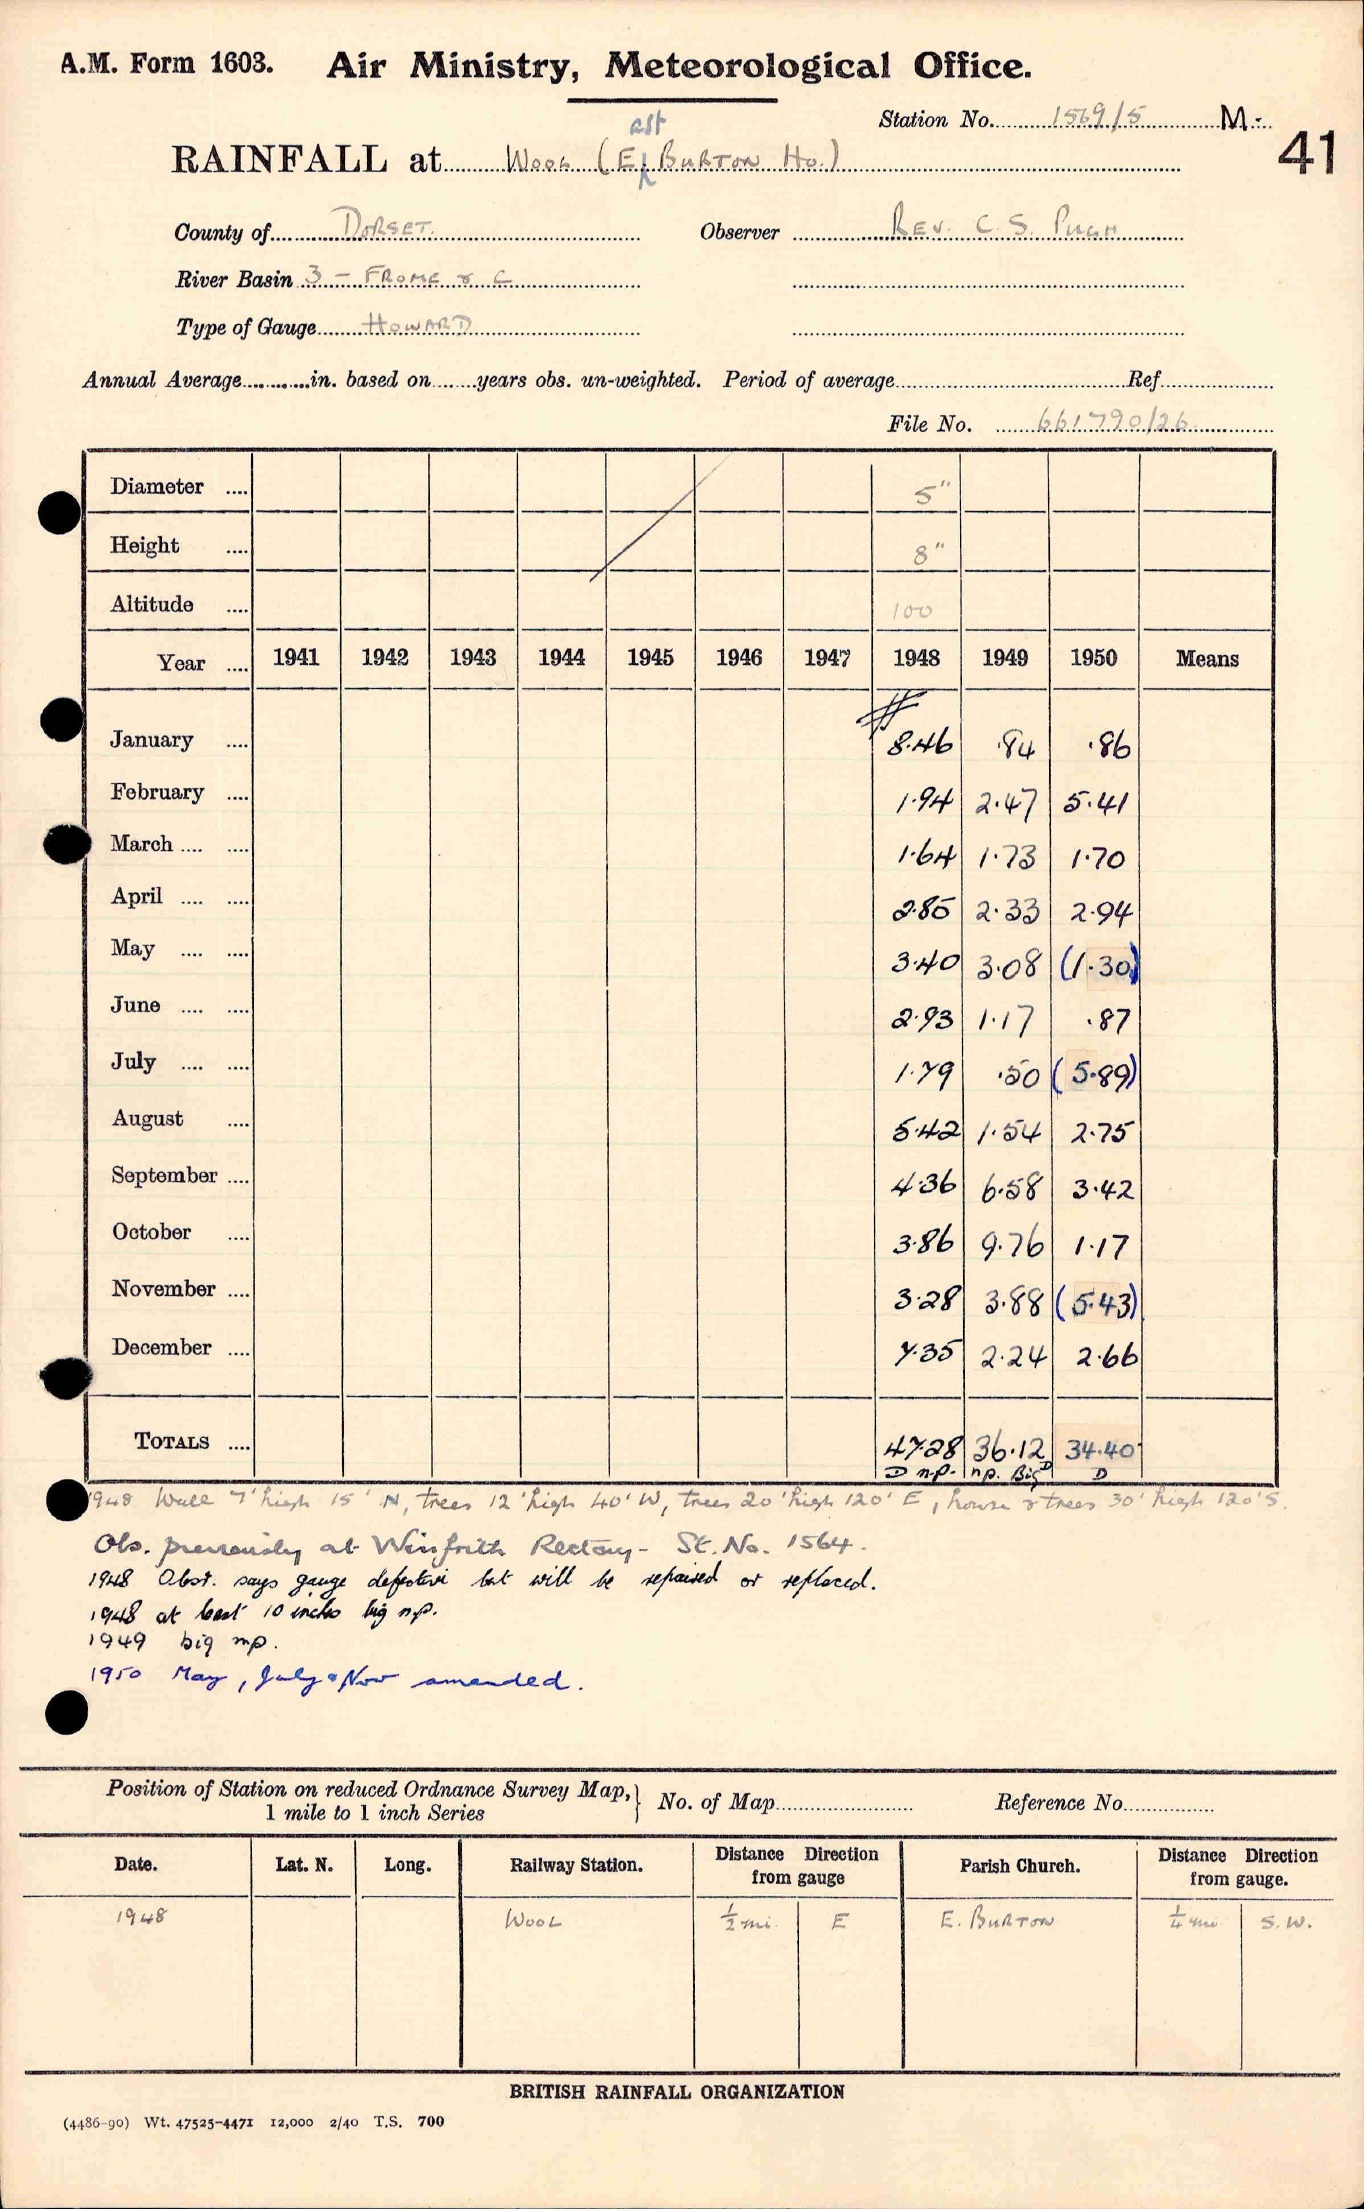 A.M. Form 1603. Air Ministry, Meteorological Office.
Station No. 1569/5 M.
41
RAINFALL at Wool (East Burton Ho.)
County of Dorset. Observer Rev. C. S. Pugh
River Basin 3 - Frome & C
Type of Gauge Howard
Annual Average in. based on years obs. un-weighted. Period of average Ref.
File No. 661790/26
Diameter 5"
Height 8"
Altitude 100
Year 1941 1942 1943 1944 1945 1946 1947 1948 1949 1950 Means
January 8.46 .84 .86
February 1.94 2.47 5.41
March 1.64 1.73 1.70
April 2.85 2.33 2.94
May 3.40 3.08 (1.30)
June 2.93 1.17 .87
July 1.79 .50 (5.89)
August 5.42 1.54 2.75
September 4.36 6.58 3.42
October 3.86 9.76 1.17
November 3.28 3.88 (5.43)
December 7.35 2.24 2.66
TOTALS 47.28 36.12 34.40
D n.p. n.p. Big D D
1948 Wall 7' high 15' N, trees 12' high 40' W, trees 20' high 120' E, house & trees 30' high 120' S.
Obs. previously at Winfrith Rectory - St. No. 1564.
1948 Obsr. says gauge defective but will be repaired or replaced.
1948 at least 10 inches big n.p.
1949 big n.p.
1950 May, July & Nov amended.
Position of Station on reduced Ordnance Survey Map, } No. of Map Reference No.
1 mile to 1 inch Series
Date. Lat. N. Long. Railway Station. Distance from gauge Direction Parish Church. Distance from gauge. Direction
1948 Wool ½ mi. E E. Burton ¼ mi. S.W.
BRITISH RAINFALL ORGANIZATION
(4486-90) Wt. 47525-4471 12,000 2/40 T.S. 700